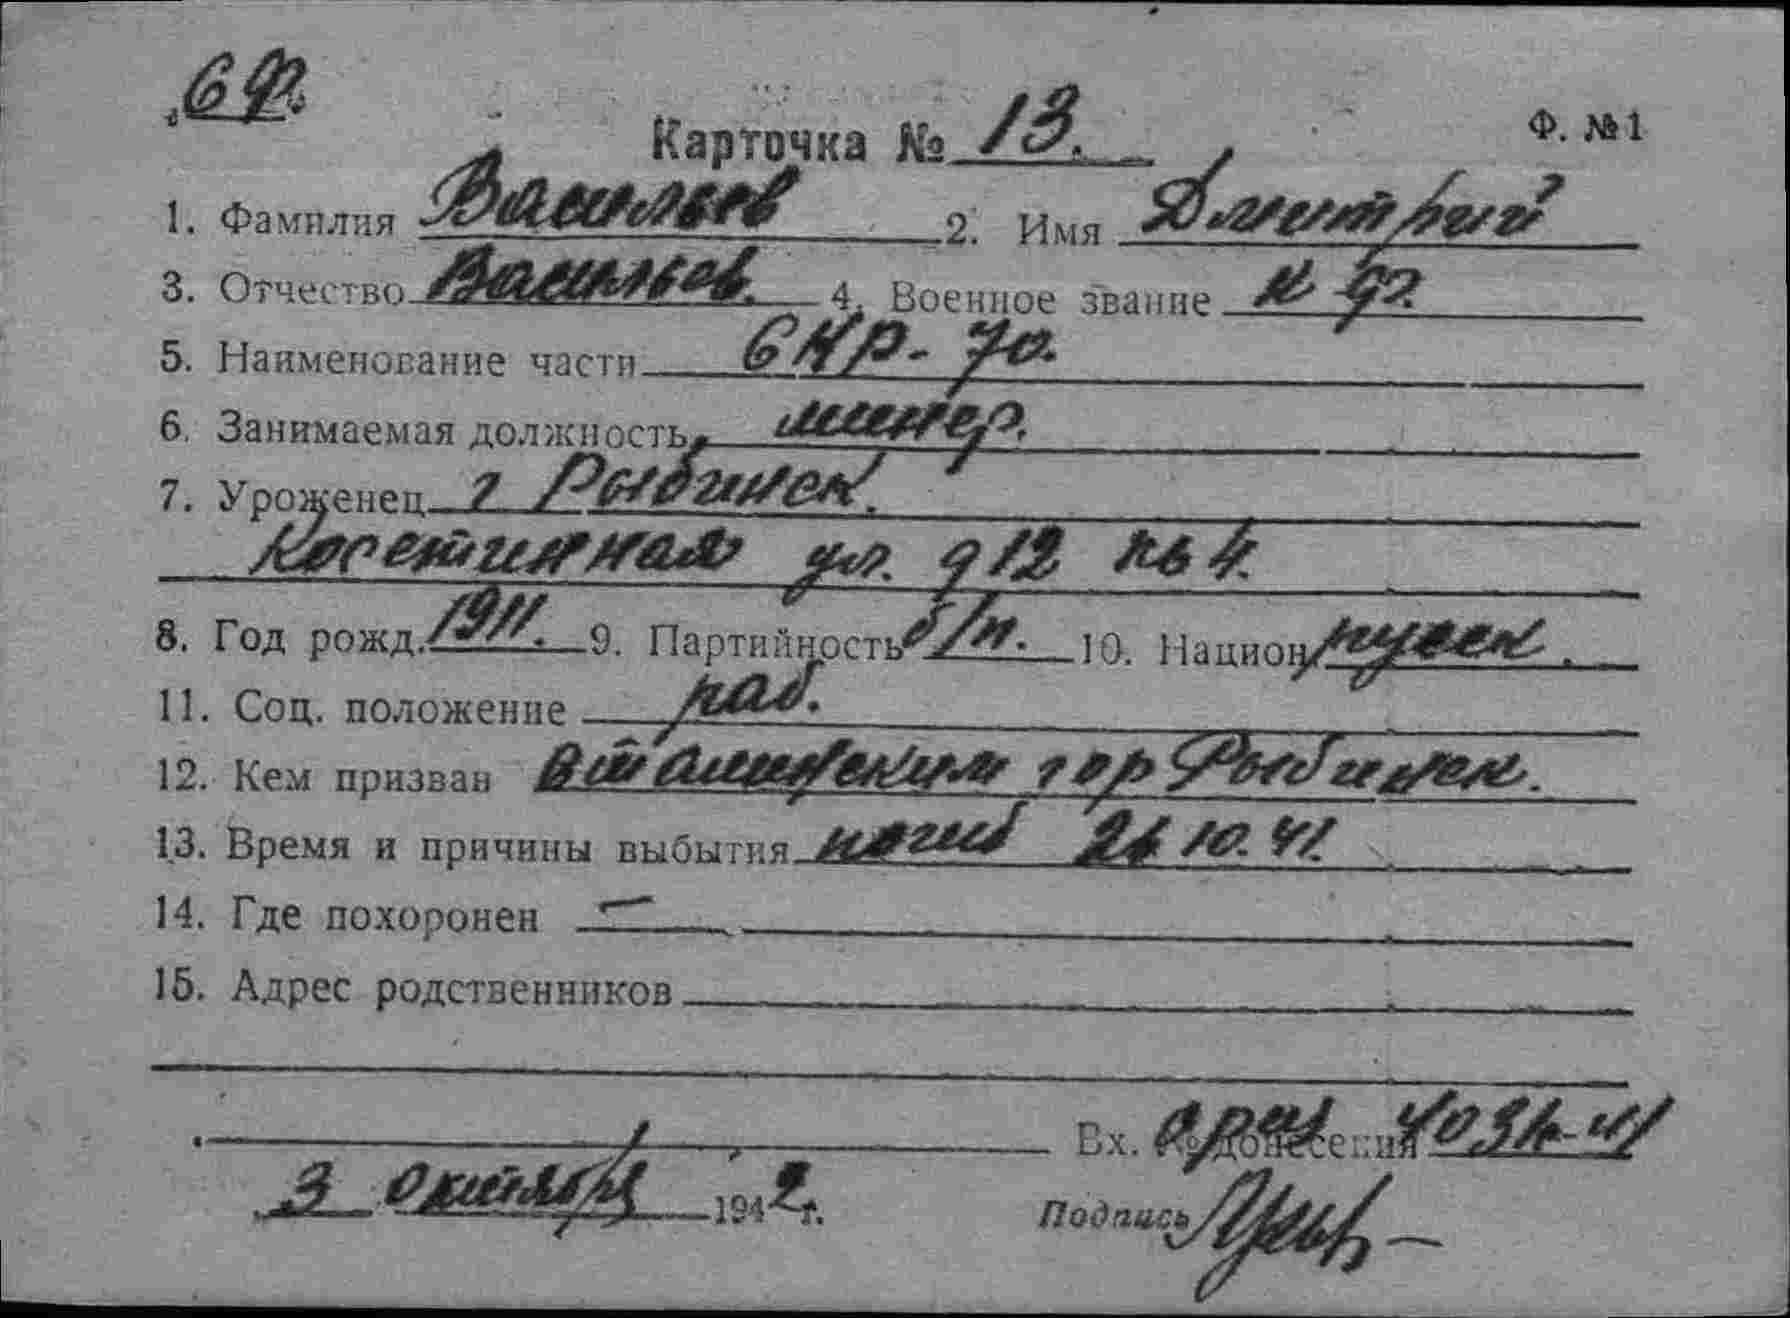 Карточка № 13.
Ф. № 1
1. Фамилия Васильев 2. Имя Дмитрий
3. Отчество Васильев. 4. Военное звание к ф.
5. Наименование части СКР-70.
6. Занимаемая должность минер.
7. Уроженец г Рыбинск.
ул. д 12 кв 4.
8. Год рожд. 1911. 9. Партийность б/п. 10. Национ русск.
11. Соц. положение раб.
12. Кем призван Сталинским гор Рыбинск.
13. Время и причины выбытия погиб 10. 41.
14. Где похоронен —
15. Адрес родственников
Вх. № донесения
3 октября 1942 г.
Подпись